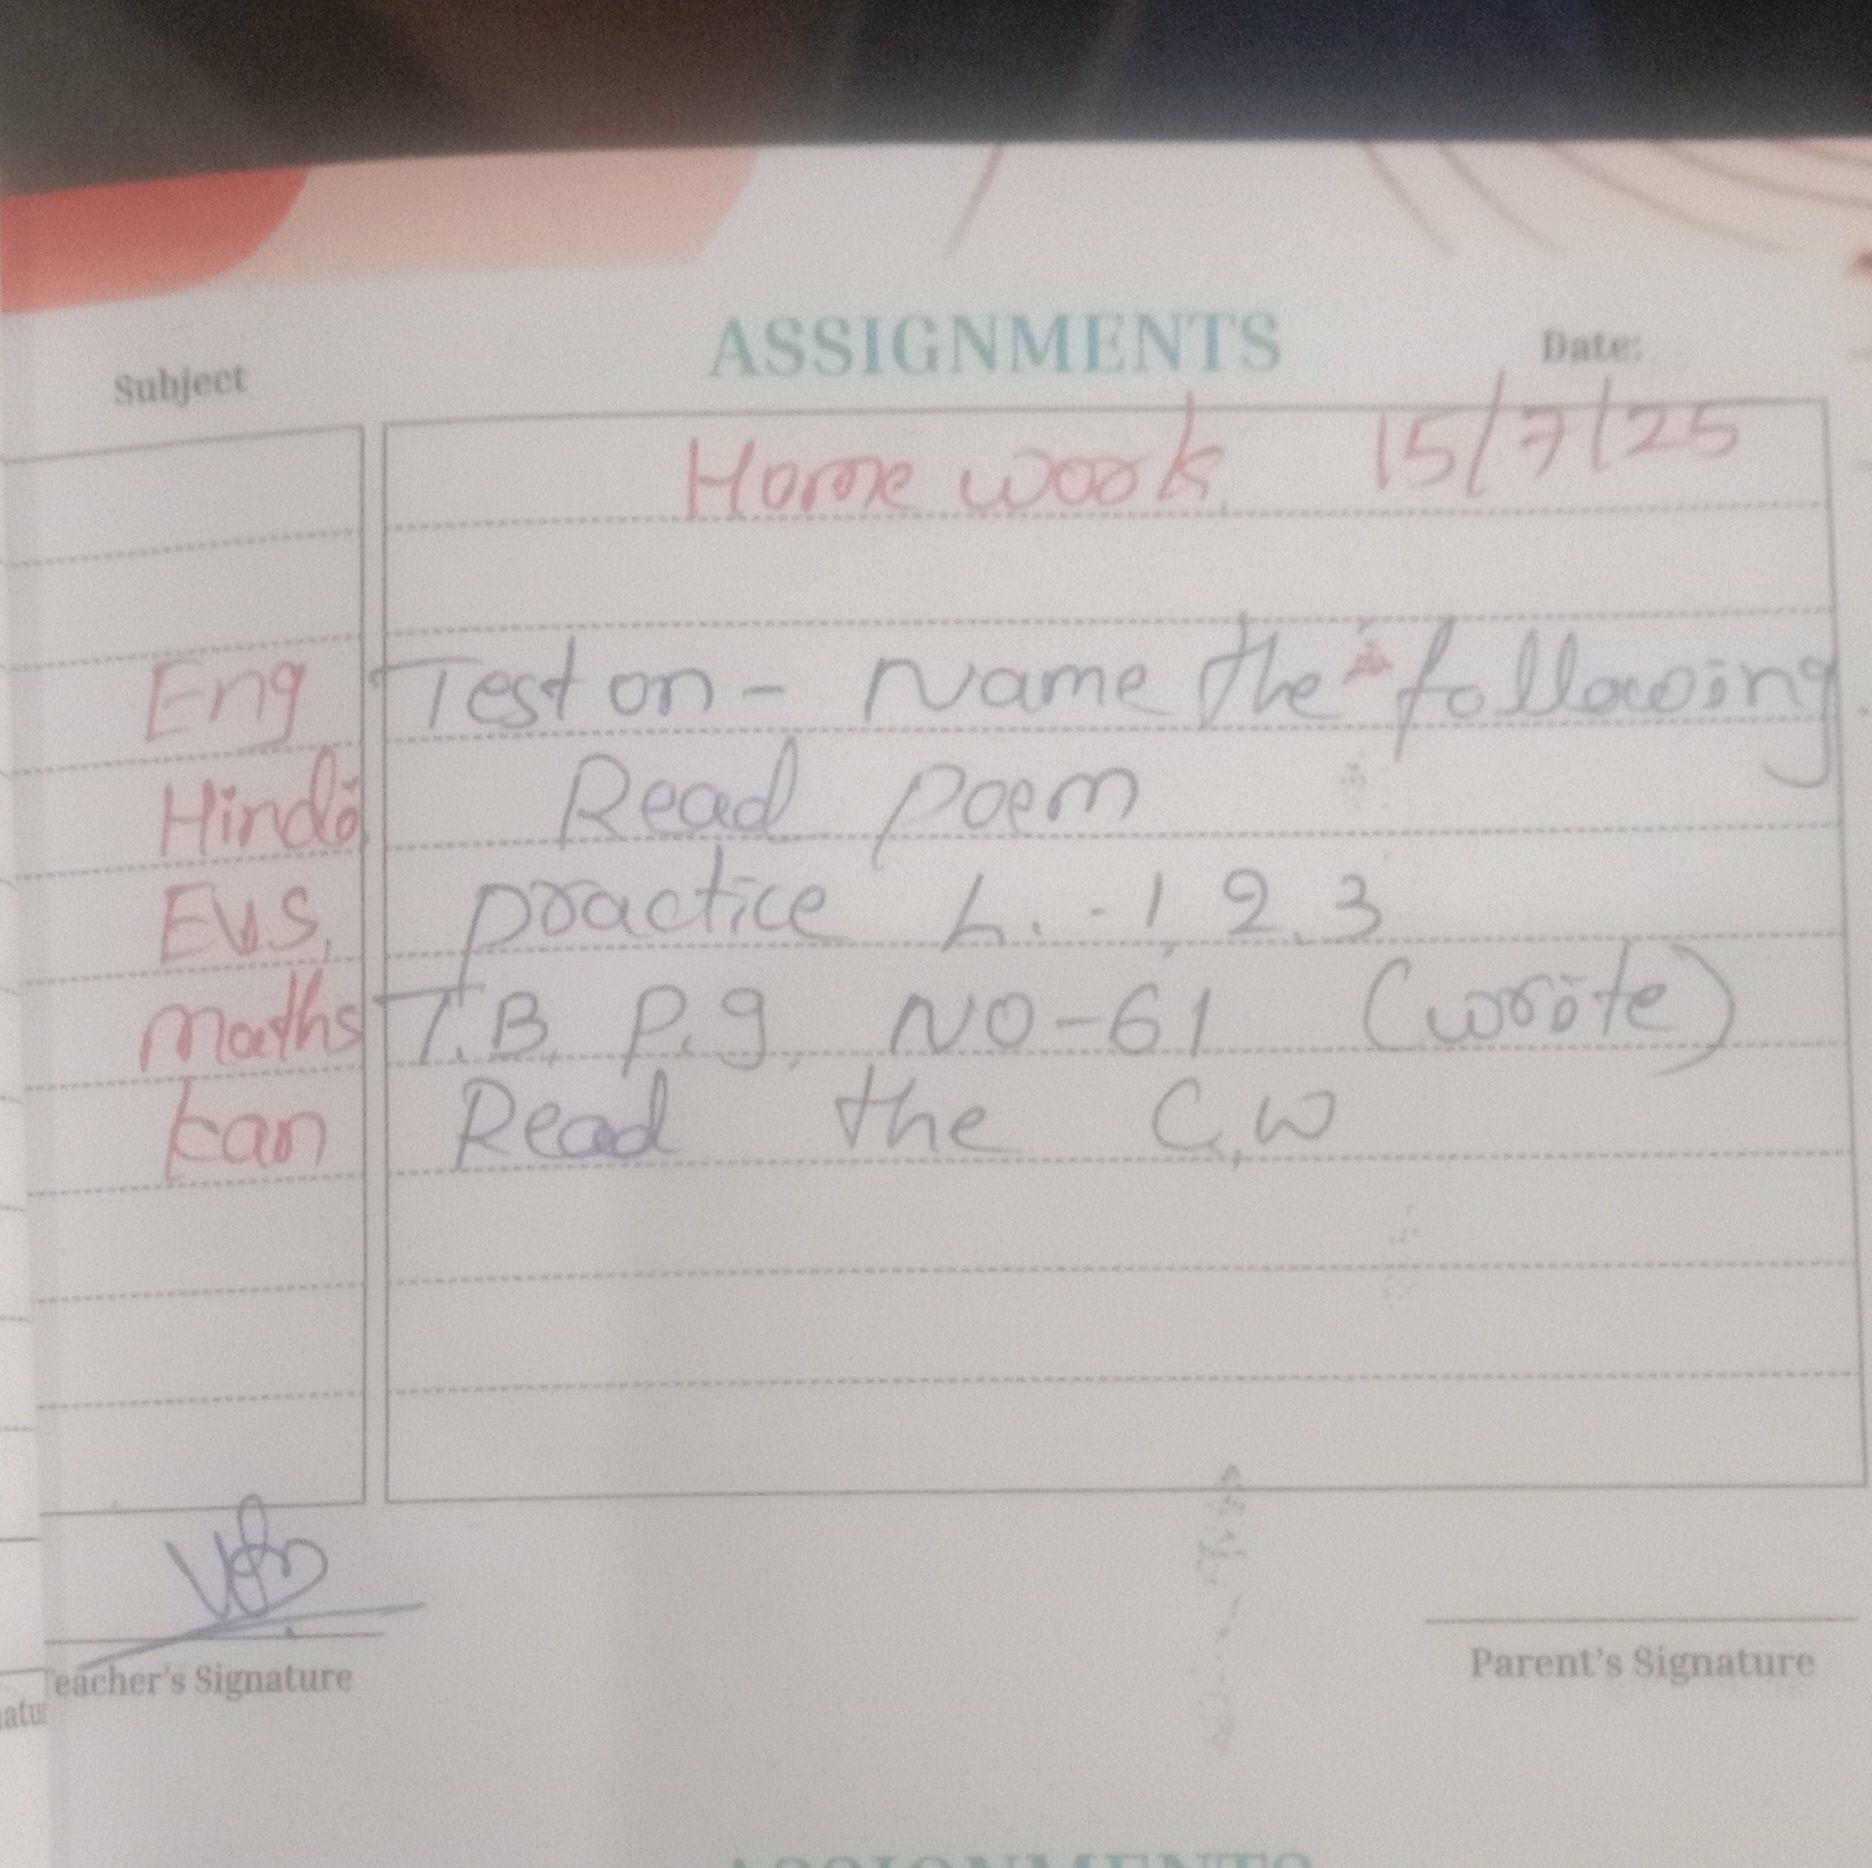 ASSIGNMENTS
Subject
Date:
Home work 15/7/25
Eng Test on - Name the following
Hindi Read poem
EVS, practice L. - 1, 2, 3
Maths T.B. P.g. NO-61 (write)
kan Read the C.W
Teacher's Signature
Parent's Signature